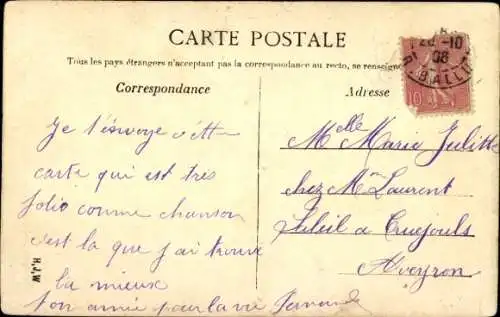 CARTE POSTALE
Tous les pays étrangers n'acceptant pas la correspondance au recto, se renseigne
Correspondance
Adresse
Je t'envoye cette
carte qui est tres
jolie comme chanson
c'est la que j'ai trouve
la mieux
ton amie pour la vie Fernande
Melle Maria Juliette
chez Mr Laurent
a Cruejouls
Aveyron
H.J.W
10
08
BALL
10